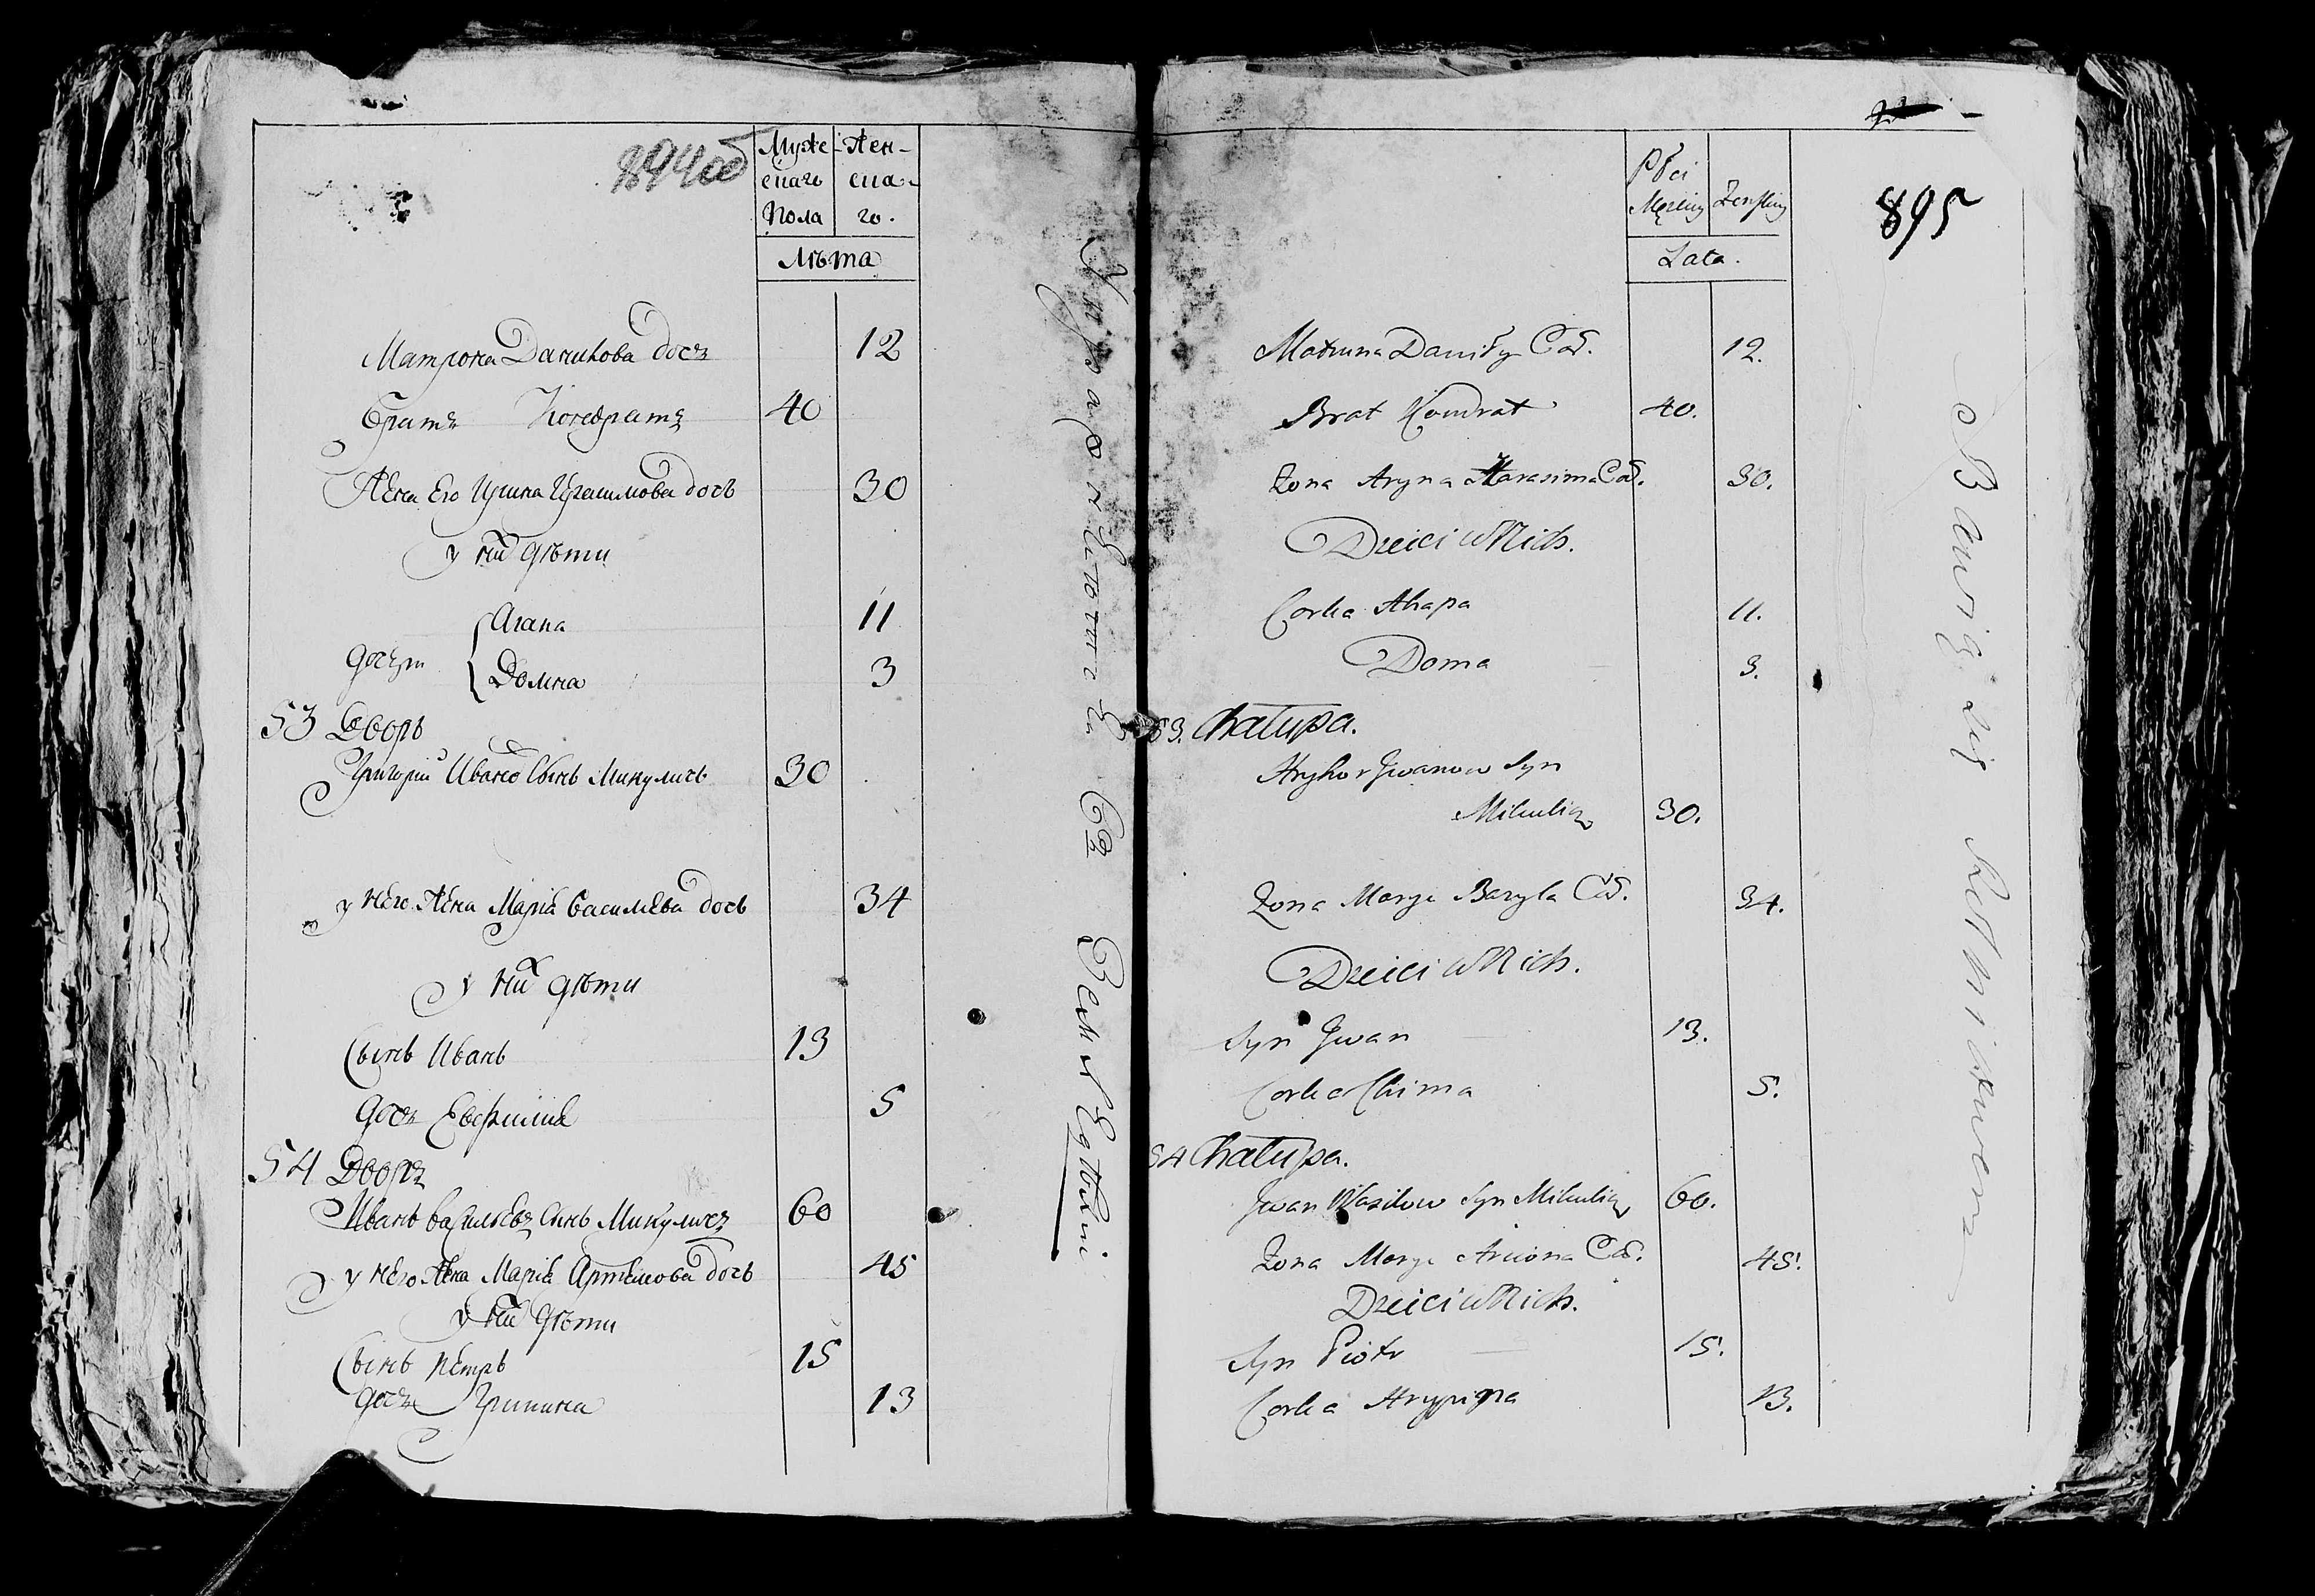 894 об
Муже-
скаго
Пола
Жен-
ска-
го.
Лѣта
Матрона Данилова дочъ 12
братъ Кондратъ 40
Жена Его Ирина Ирасимова дочь 30
у ни дѣти
дочери
Агапа 11
Домна 3
53 Дворъ
Григорій Ивановъ Сынъ Микуличь 30
у него Жена Марія Василева дочь 34
у них дѣти
Сынъ Иванъ 13
дочъ Евфимия 5
54 Дворъ
Иванъ василевъ Сынъ Микуличъ 60
у него Жена Марія Артемова дочь 45
у них дѣти
Сынъ петръ 15
дочъ Грипина 13
895
Płci
Męzkiey
Żenskiey
Lata.
Matruna Daniły Cór. 12.
Brat Kondrat 40.
Żona Aryna Harasima Cór. 30.
Dzieci u Nich.
Corka Ahapa 11.
Doma 3.
53. Chałupa.
Hryhor Jwanow Syn
Mikulicz 30.
Żona Marya Bazyla Cór. 34.
Dzieci u Nich.
Syn Jwan 13.
Corka Chima 5.
54 Chałupa.
Jwan Wasilow Syn Mikulicz 60.
Żona Marya Arciona Cór. 45.
Dzieci u Nich.
Syn Piotr 15.
Corka Hrypina 13.